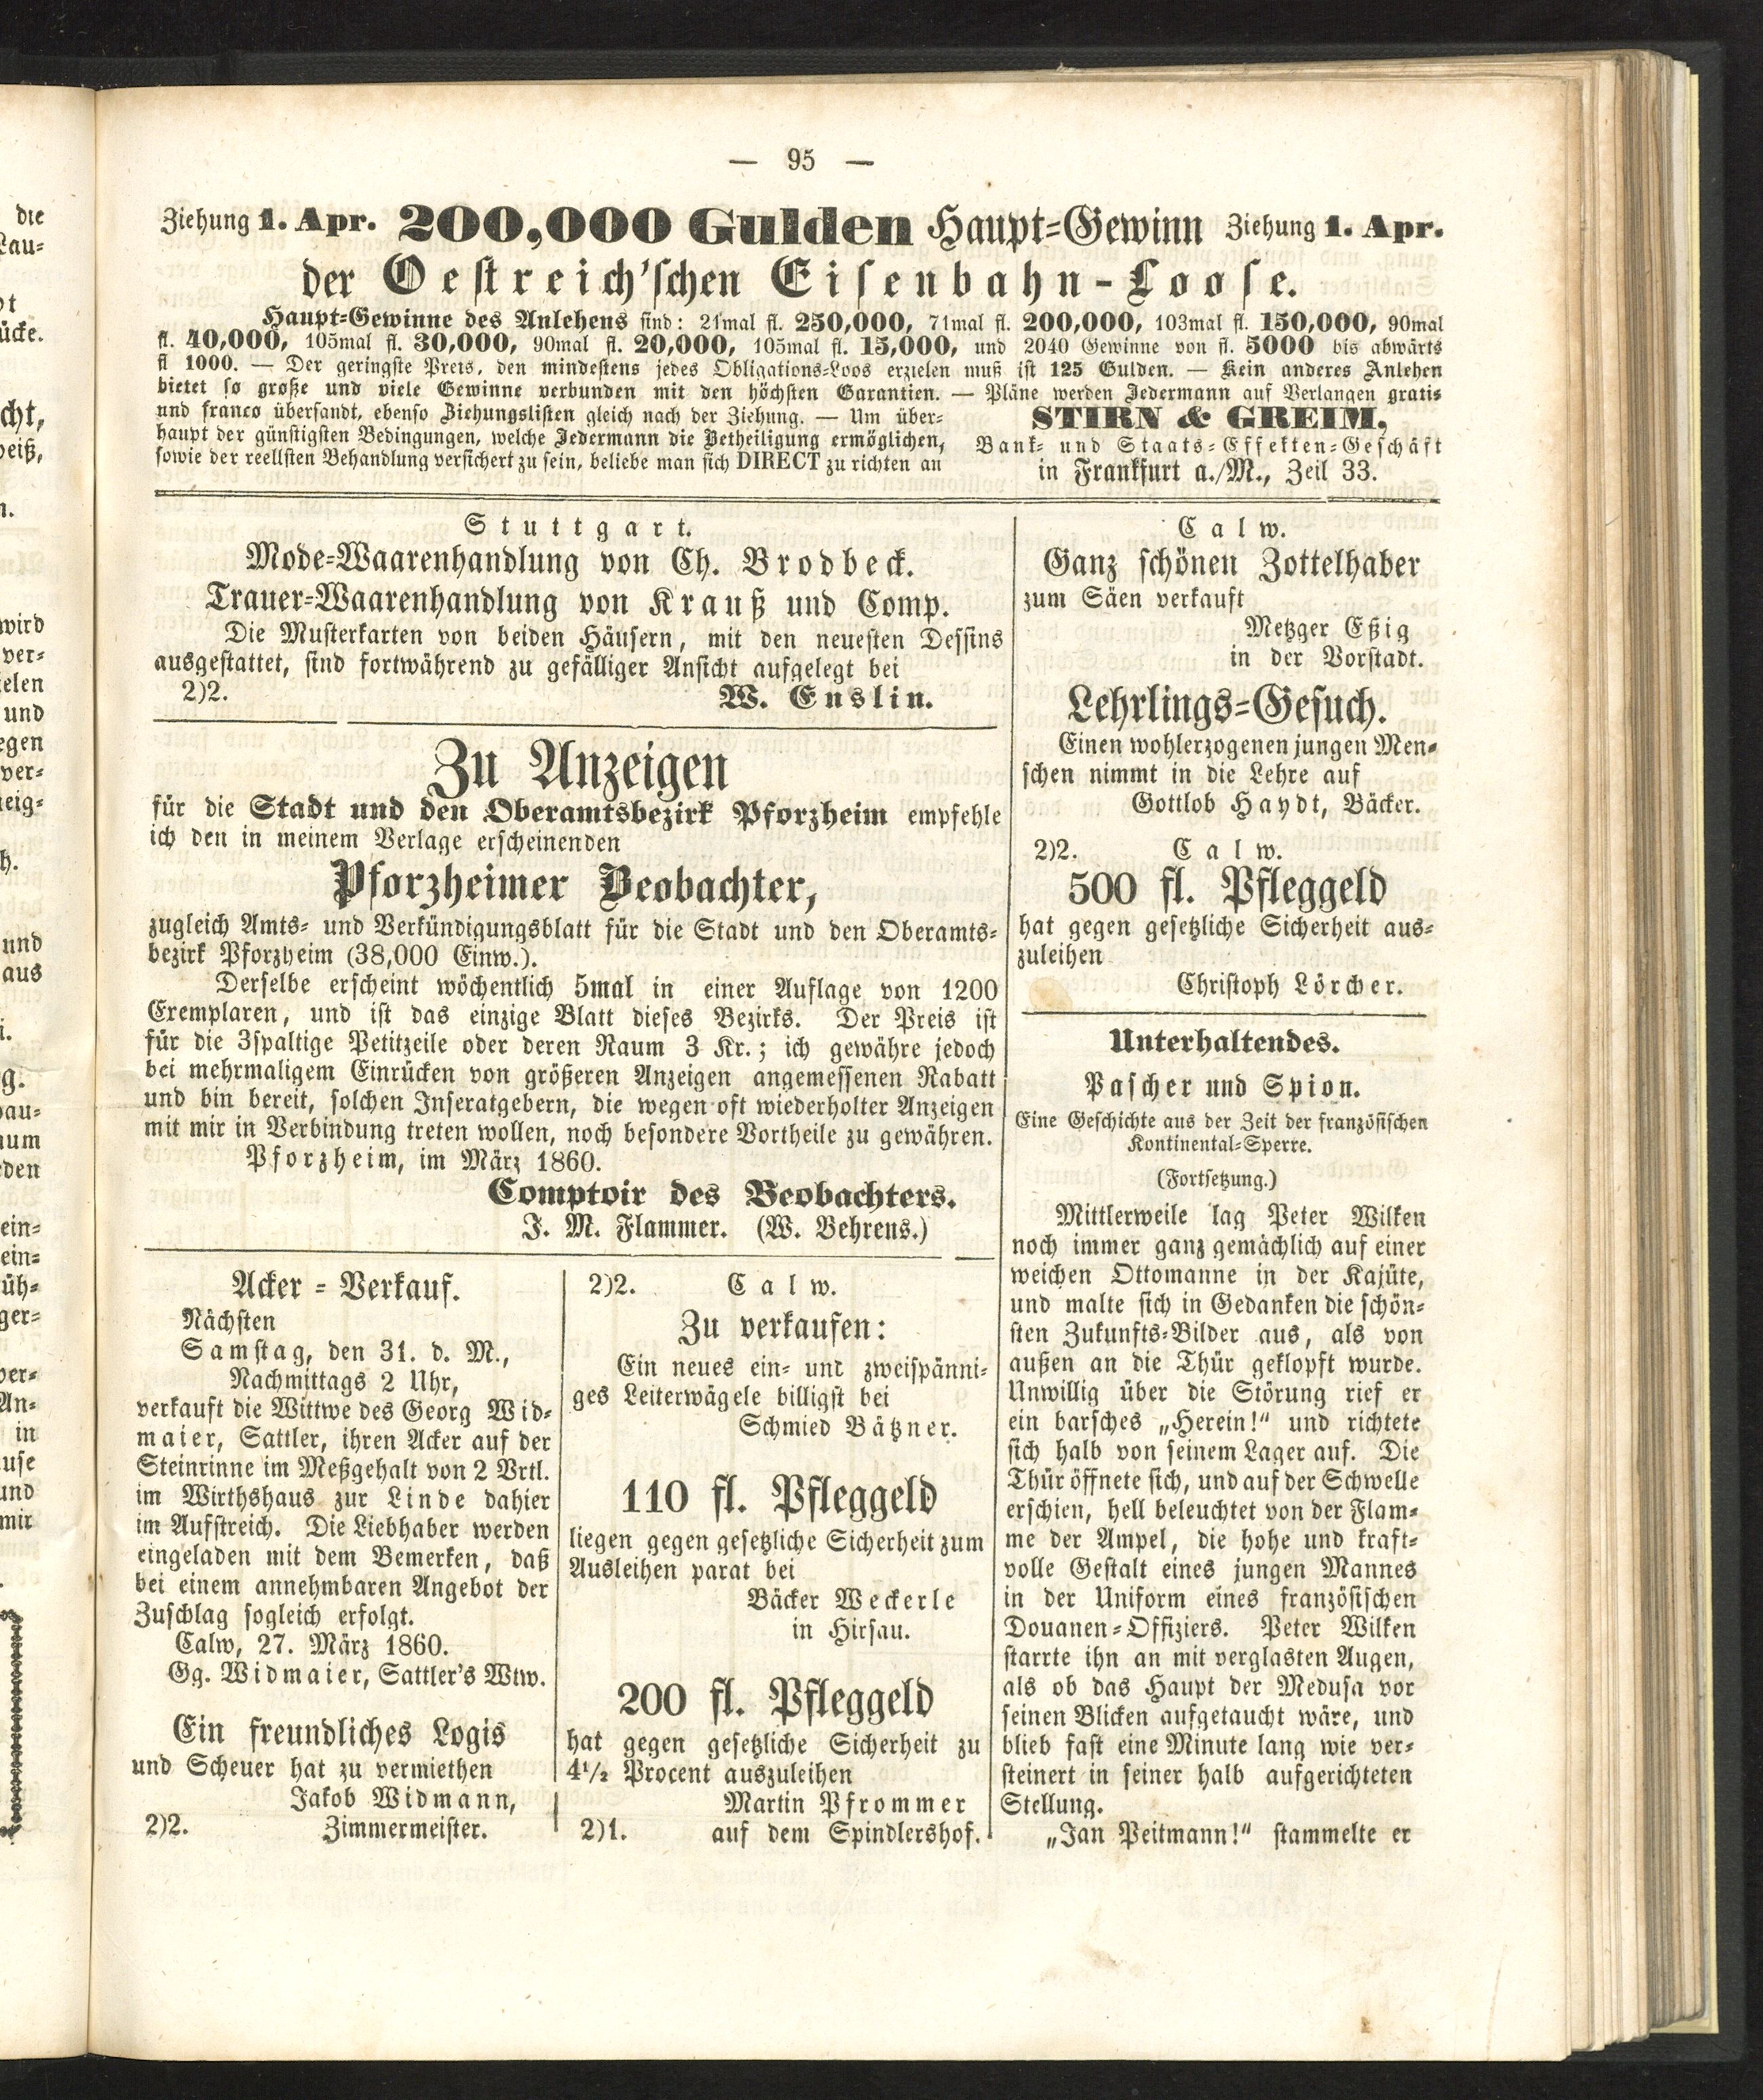 — 95 —
Ziehung 1. Apr. 200,000 Gulden Haupt=Gewinn Ziehung 1. Apr.
der Oestreich'schen Eisenbahn-Loose.
Haupt=Gewinne des Anlehens sind: 21mal fl. 250,000, 71mal fl. 200,000, 103mal fl. 150,000, 90mal
fl. 40,000, 105mal fl. 30,000, 90mal fl. 20,000, 105mal fl. 15,000, und 2040 Gewinne von fl. 5000 bis abwärts
fl 1000. — Der geringste Preis, den mindestens jedes Obligations=Loos erzielen muß ist 125 Gulden. — Kein anderes Anlehen
bietet so große und viele Gewinne verbunden mit den höchsten Garantien. — Pläne werden Jedermann auf Verlangen gratis
und franco übersandt, ebenso Ziehungslisten gleich nach der Ziehung. — Um über=
haupt der günstigsten Bedingungen, welche Jedermann die Betheiligung ermöglichen,
sowie der reellsten Behandlung versichert zu sein, beliebe man sich DIRECT zu richten an
STIRN & GREIM,
Bank= und Staats=Effekten=Geschäft
in Frankfurt a./M., Zeil 33.
Stuttgart.
Mode=Waarenhandlung von Ch. Brodbeck.
Trauer=Waarenhandlung von Krauß und Comp.
Die Musterkarten von beiden Häusern, mit den neuesten Dessins
ausgestattet, sind fortwährend zu gefälliger Ansicht aufgelegt bei
2)2. W. Enslin.
Zu Anzeigen
für die Stadt und den Oberamtsbezirk Pforzheim empfehle
ich den in meinem Verlage erscheinenden
Pforzheimer Beobachter,
zugleich Amts= und Verkündigungsblatt für die Stadt und den Oberamts=
bezirk Pforzheim (38,000 Einw.).
Derselbe erscheint wöchentlich 5mal in einer Auflage von 1200
Exemplaren, und ist das einzige Blatt dieses Bezirks. Der Preis ist
für die 3spaltige Petitzeile oder deren Raum 3 Kr.; ich gewähre jedoch
bei mehrmaligem Einrücken von größeren Anzeigen angemessenen Rabatt
und bin bereit, solchen Inseratgebern, die wegen oft wiederholter Anzeigen
mit mir in Verbindung treten wollen, noch besondere Vortheile zu gewähren.
Pforzheim, im März 1860.
Comptoir des Beobachters.
J. M. Flammer. (W. Behrens.)
Acker = Verkauf.
Nächsten
Samstag, den 31. d. M.,
Nachmittags 2 Uhr,
verkauft die Wittwe des Georg Wid=
maier, Sattler, ihren Acker auf der
Steinrinne im Meßgehalt von 2 Vrtl.
im Wirthshaus zur Linde dahier
im Aufstreich. Die Liebhaber werden
eingeladen mit dem Bemerken, daß
bei einem annehmbaren Angebot der
Zuschlag sogleich erfolgt.
Calw, 27. März 1860.
Gg. Widmaier, Sattler's Wtw.
Ein freundliches Logis
und Scheuer hat zu vermiethen
Jakob Widmann,
2)2. Zimmermeister.
2)2. Calw.
Zu verkaufen:
Ein neues ein= und zweispänni=
ges Leiterwägele billigst bei
Schmied Bätzner.
110 fl. Pfleggeld
liegen gegen gesetzliche Sicherheit zum
Ausleihen parat bei
Bäcker Weckerle
in Hirsau.
200 fl. Pfleggeld
hat gegen gesetzliche Sicherheit zu
4½ Procent auszuleihen
Martin Pfrommer
2)1. auf dem Spindlershof.
Calw.
Ganz schönen Zottelhaber
zum Säen verkauft
Metzger Eßig
in der Vorstadt.
Lehrlings=Gesuch.
Einen wohlerzogenen jungen Men=
schen nimmt in die Lehre auf
Gottlob Haydt, Bäcker.
2)2. Calw.
500 fl. Pfleggeld
hat gegen gesetzliche Sicherheit aus=
zuleihen
Christoph Lörcher.
Unterhaltendes.
Pascher und Spion.
Eine Geschichte aus der Zeit der französischen
Kontinental=Sperre.
(Fortsetzung.)
Mittlerweile lag Peter Wilken
noch immer ganz gemächlich auf einer
weichen Ottomanne in der Kajüte,
und malte sich in Gedanken die schön=
sten Zukunfts=Bilder aus, als von
außen an die Thür geklopft wurde.
Unwillig über die Störung rief er
ein barsches „Herein!“ und richtete
sich halb von seinem Lager auf. Die
Thür öffnete sich, und auf der Schwelle
erschien, hell beleuchtet von der Flam=
me der Ampel, die hohe und kraft=
volle Gestalt eines jungen Mannes
in der Uniform eines französischen
Douanen=Offiziers. Peter Wilken
starrte ihn an mit verglasten Augen,
als ob das Haupt der Medusa vor
seinen Blicken aufgetaucht wäre, und
blieb fast eine Minute lang wie ver=
steinert in seiner halb aufgerichteten
Stellung.
„Jan Peitmann!“ stammelte er